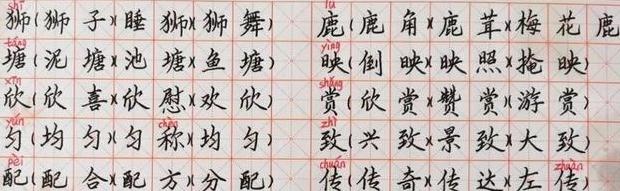 shī lù
狮(狮子)(睡狮)(狮舞) 鹿(鹿角)(鹿茸)(梅花鹿
táng yìng
塘(泥塘)(池塘)(鱼塘) 映(倒映)(映照)(掩映)
xīn shǎng
欣(欣喜)(欣慰)(欢欣) 赏(欣赏)(赞赏)(游赏)
yún chèn zhì
匀(均匀)(匀称)(均匀) 致(兴致)(景致)(大致)
pèi chuán zhuàn
配(配合)(配方)(分配) 传(传奇)(传达)(左传)